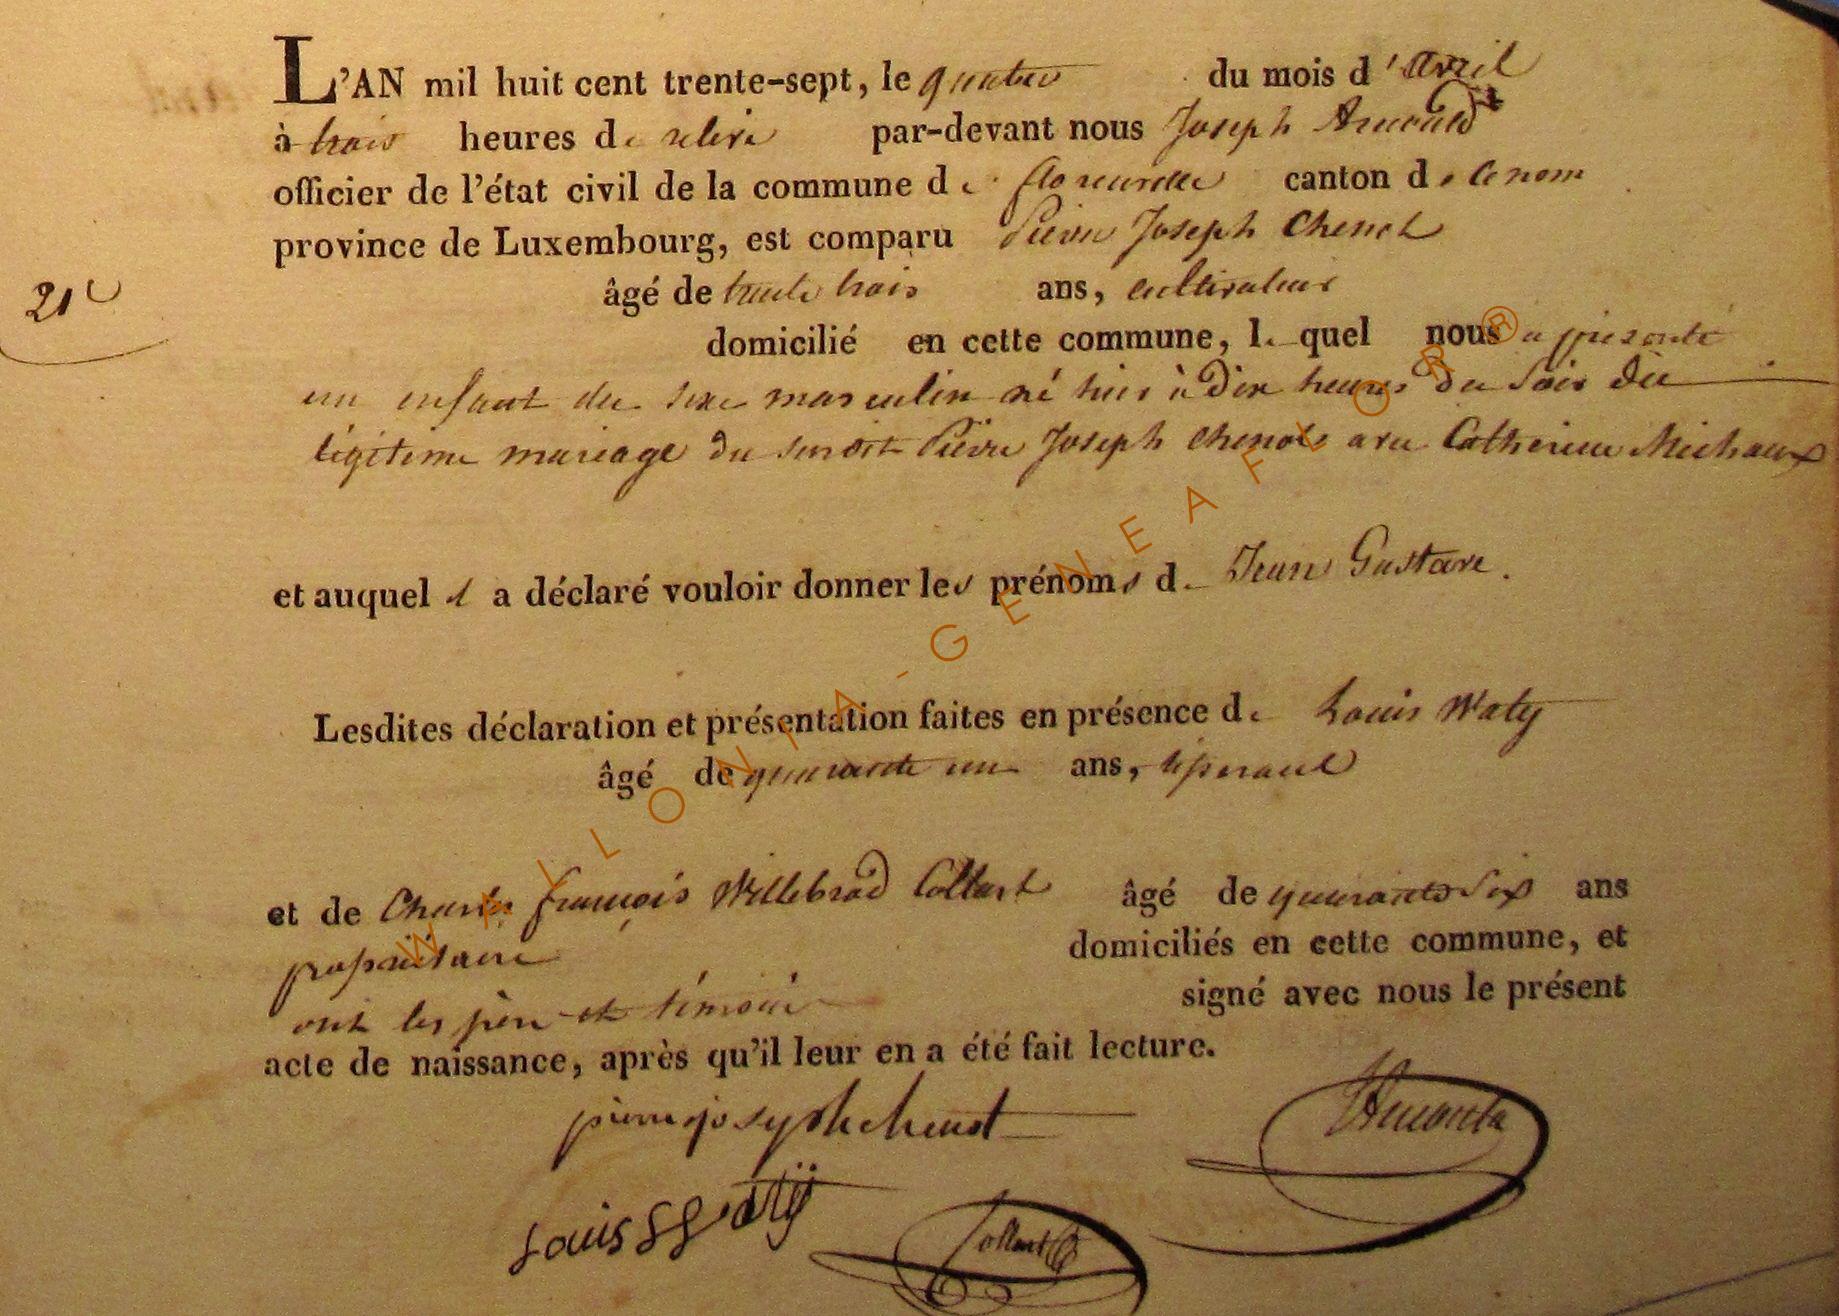 L'AN mil huit cent trente-sept, le quatre du mois d'avril
à trois heures de relevé par-devant nous Joseph Arnould
officier de l'état civil de la commune de florenville canton de ce nom
province de Luxembourg, est comparu Pierre Joseph Chenot
21e
âgé de trente trois ans, cultivateur
domicilié en cette commune, lequel nous a présenté
un enfant du sexe masculin né hier à Dix heures du Soir du
légitime mariage du susdit Pierre Joseph Chenot avec Catherine Michaux
et auquel il a déclaré vouloir donner les prénoms de Jean Gustave.
Lesdites déclaration et présentation faites en présence de Louis Waty
âgé de quarante un ans,
et de Charles françois Willebrod Collart âgé de quarante Six ans
propriétaire domiciliés en cette commune, et
ont les père et témoins signé avec nous le présent
acte de naissance, après qu'il leur en a été fait lecture.
pierre joseph chenot
Louis Watÿ
Collart
WALLONIA-GENEAFLOR®